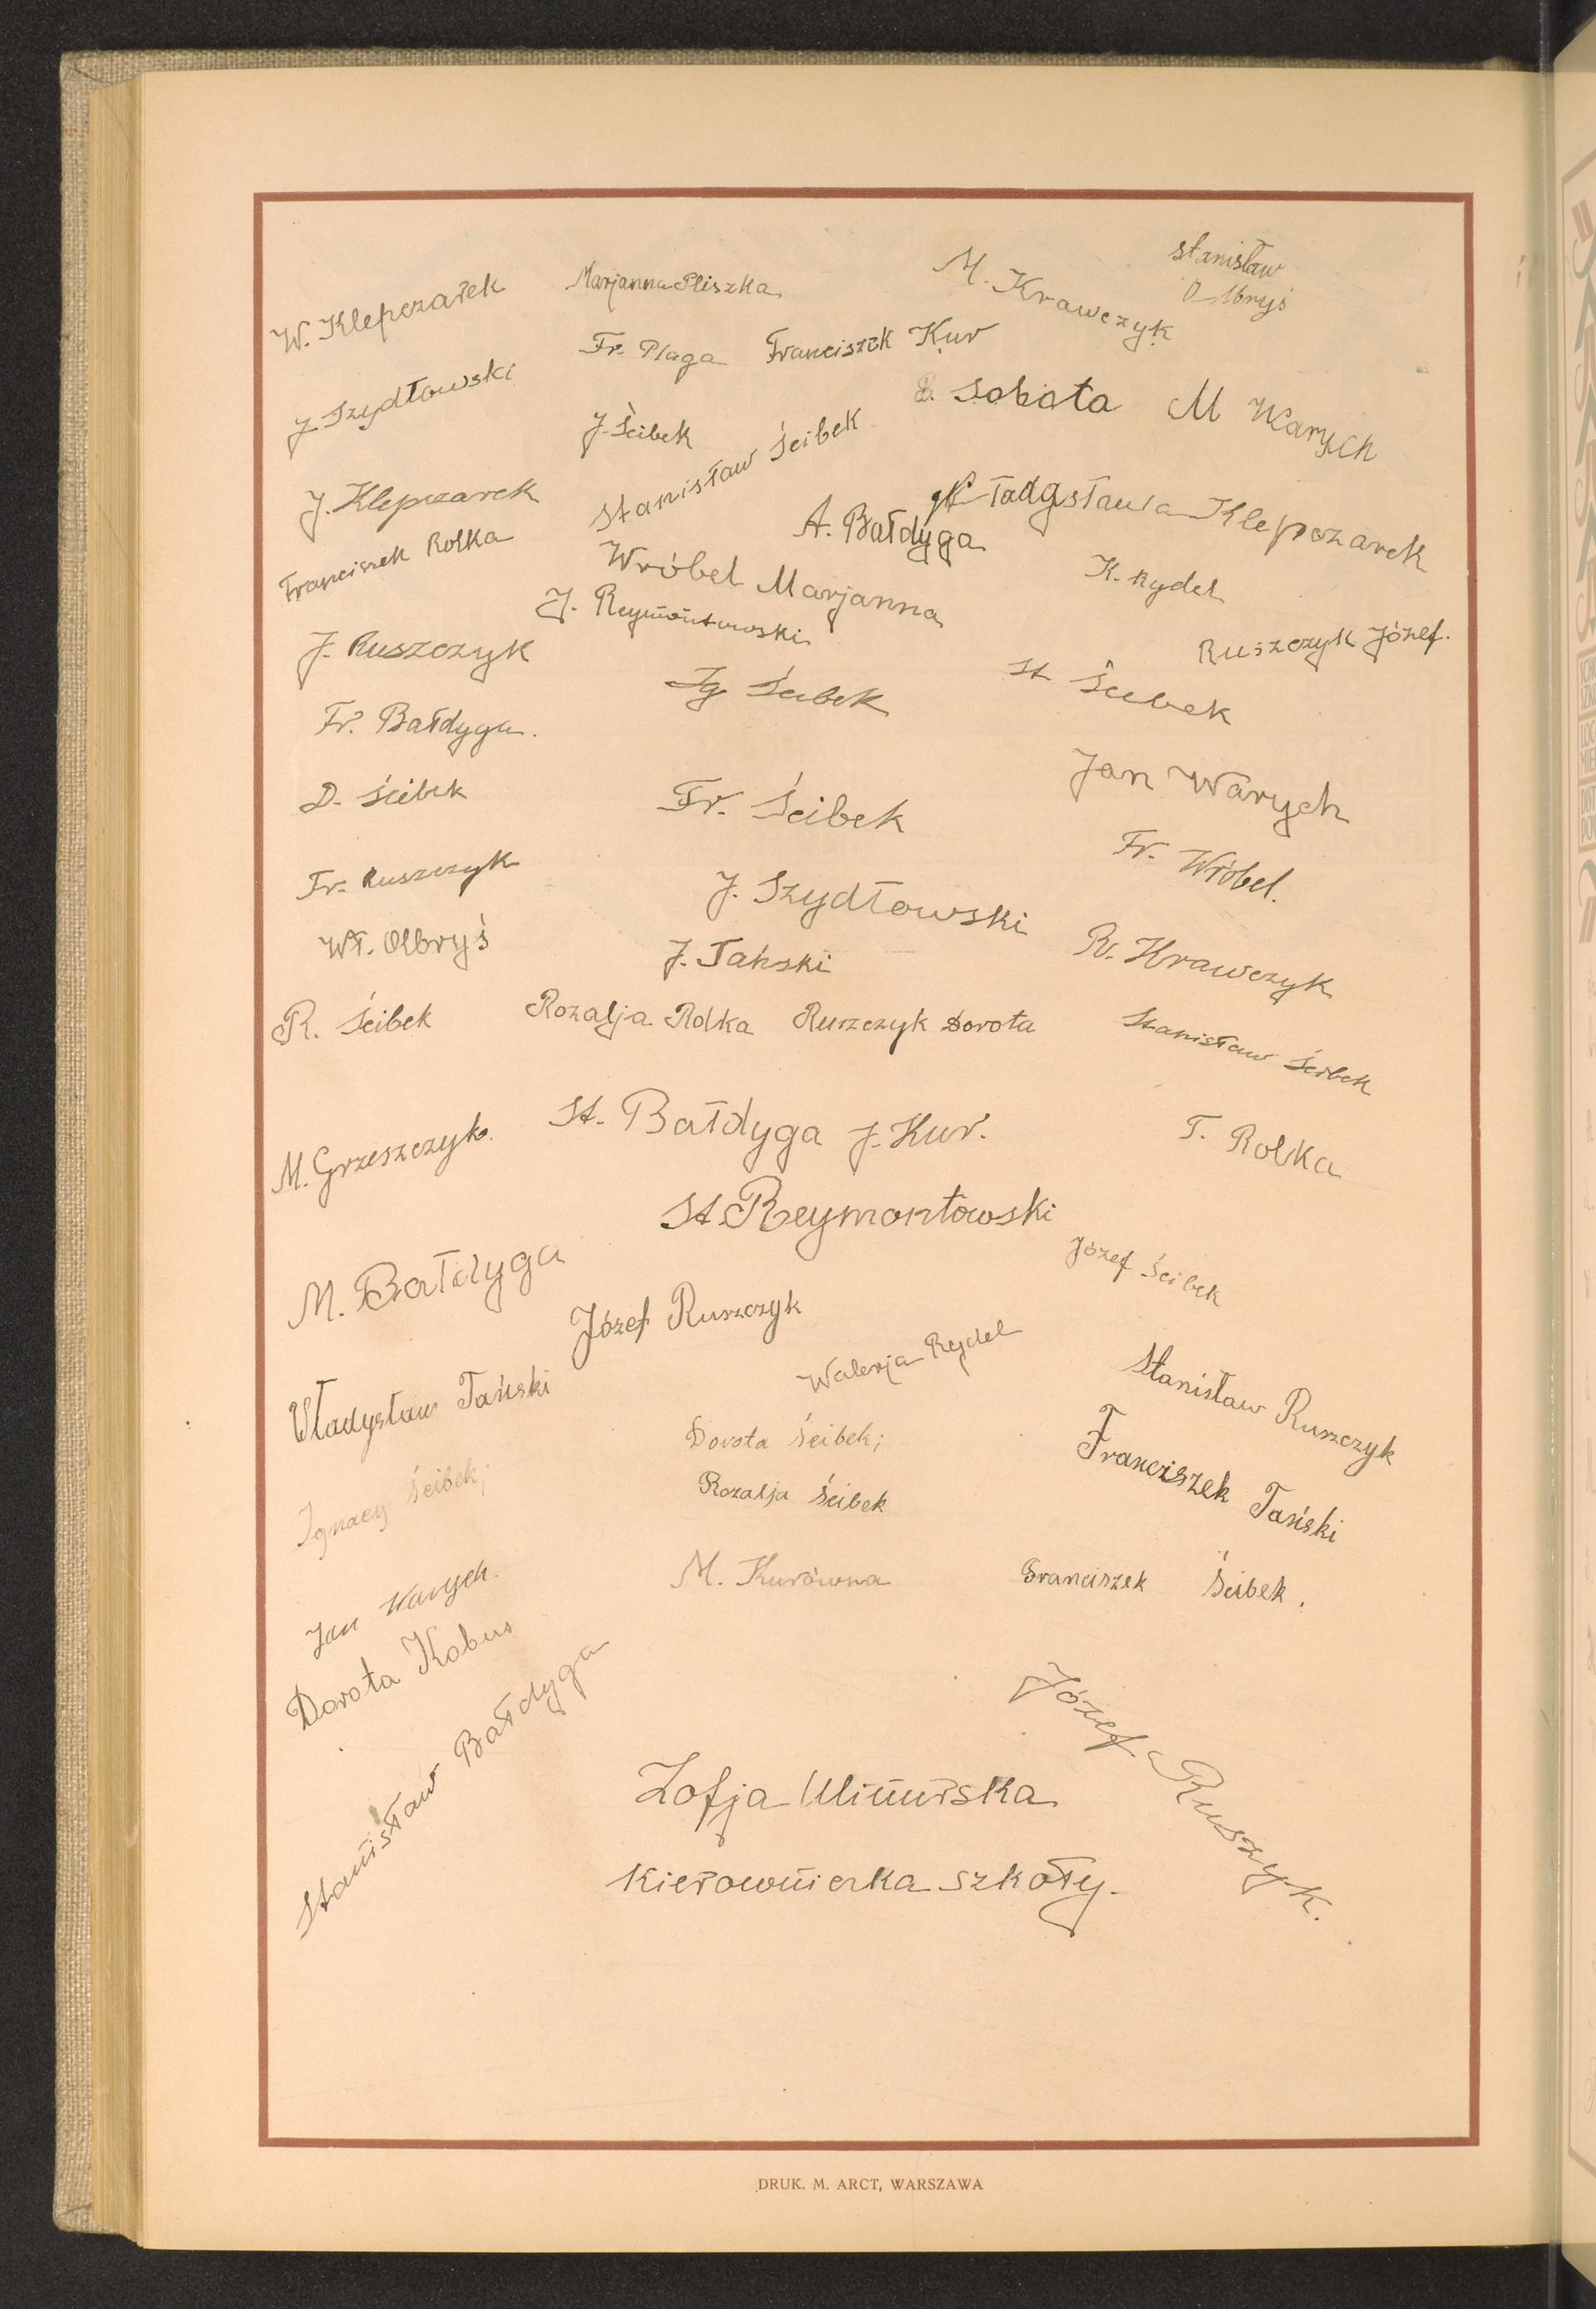 W. Klepczarek
Marjanna Pliszka
M. Krawczyk
Stanisław Olbryś
Fr. Plaga
Franciszek Kur
J. Szydłowski
J. Ścibek
Sobota
M Warych
Stanisław Ścibek
J. Klepczarek
A. Bałdyga
Władysława Klepczarek
Franciszek Rolka
Wróbel Marjanna
K. Rydel
J. Reymontowski
J. Ruszczyk
Ruszczyk Józef.
Ig Ścibek
St Ścibek
Fr. Bałdyga.
D. Ścibek
Fr. Ścibek
Jan Warych
Fr. Ruszczyk
J. Szydłowski
Fr. Wróbel.
Wł. Olbryś
J. Tański
R. Krawczyk
R. Ścibek
Rozalja Rolka
Ruszczyk Dorota
Stanisław Ścibek
M. Grzeszczyk.
St. Bałdyga
J. Kur.
T. Rolka
St. Reymontowski
M. Bałdyga
Józef Ścibek
Józef Ruszczyk
Walerja Rydel
Władysław Tański
Stanisław Ruszczyk
Dorota Ścibek;
Ignacy Ścibek;
Rozalja Ścibek
Franciszek Tański
M. Kurówna
Franciszek Ścibek.
Jan Warych.
Dorota Kobus
Stanisław Bałdyga
Józef Ruszyk.
Zofja
Kierowniczka szkoły.
DRUK. M. ARCT, WARSZAWA